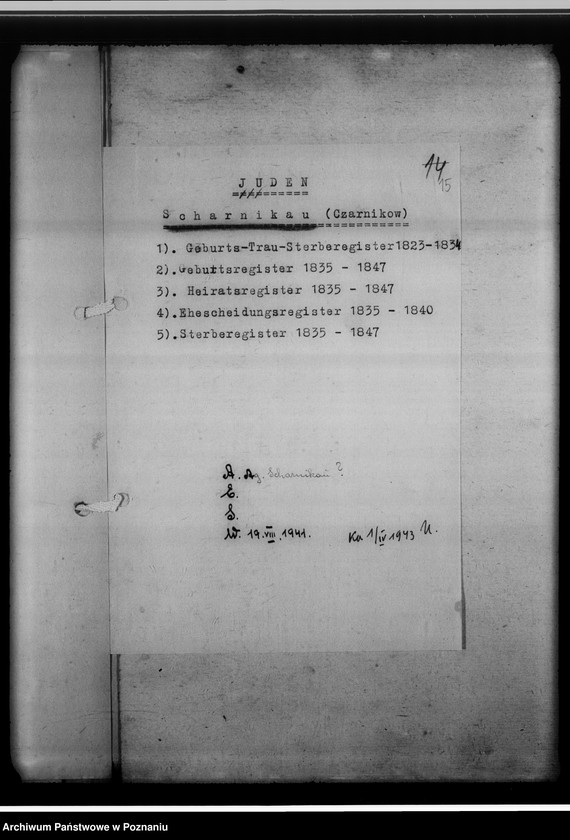 14
15
JUDEN
Scharnikau (Czarnikow)
1). Geburts-Trau-Sterberegister1823-1834
2).Geburtsregister 1835 - 1847
3). Heiratsregister 1835 - 1847
4).Ehescheidungsregister 1835 - 1840
5).Sterberegister 1835 - 1847
A. Ag. Scharnikau ?
E.
S.
W. 19.VIII.1941. Ka 1/IV 1943 U.
Archiwum Państwowe w Poznaniu